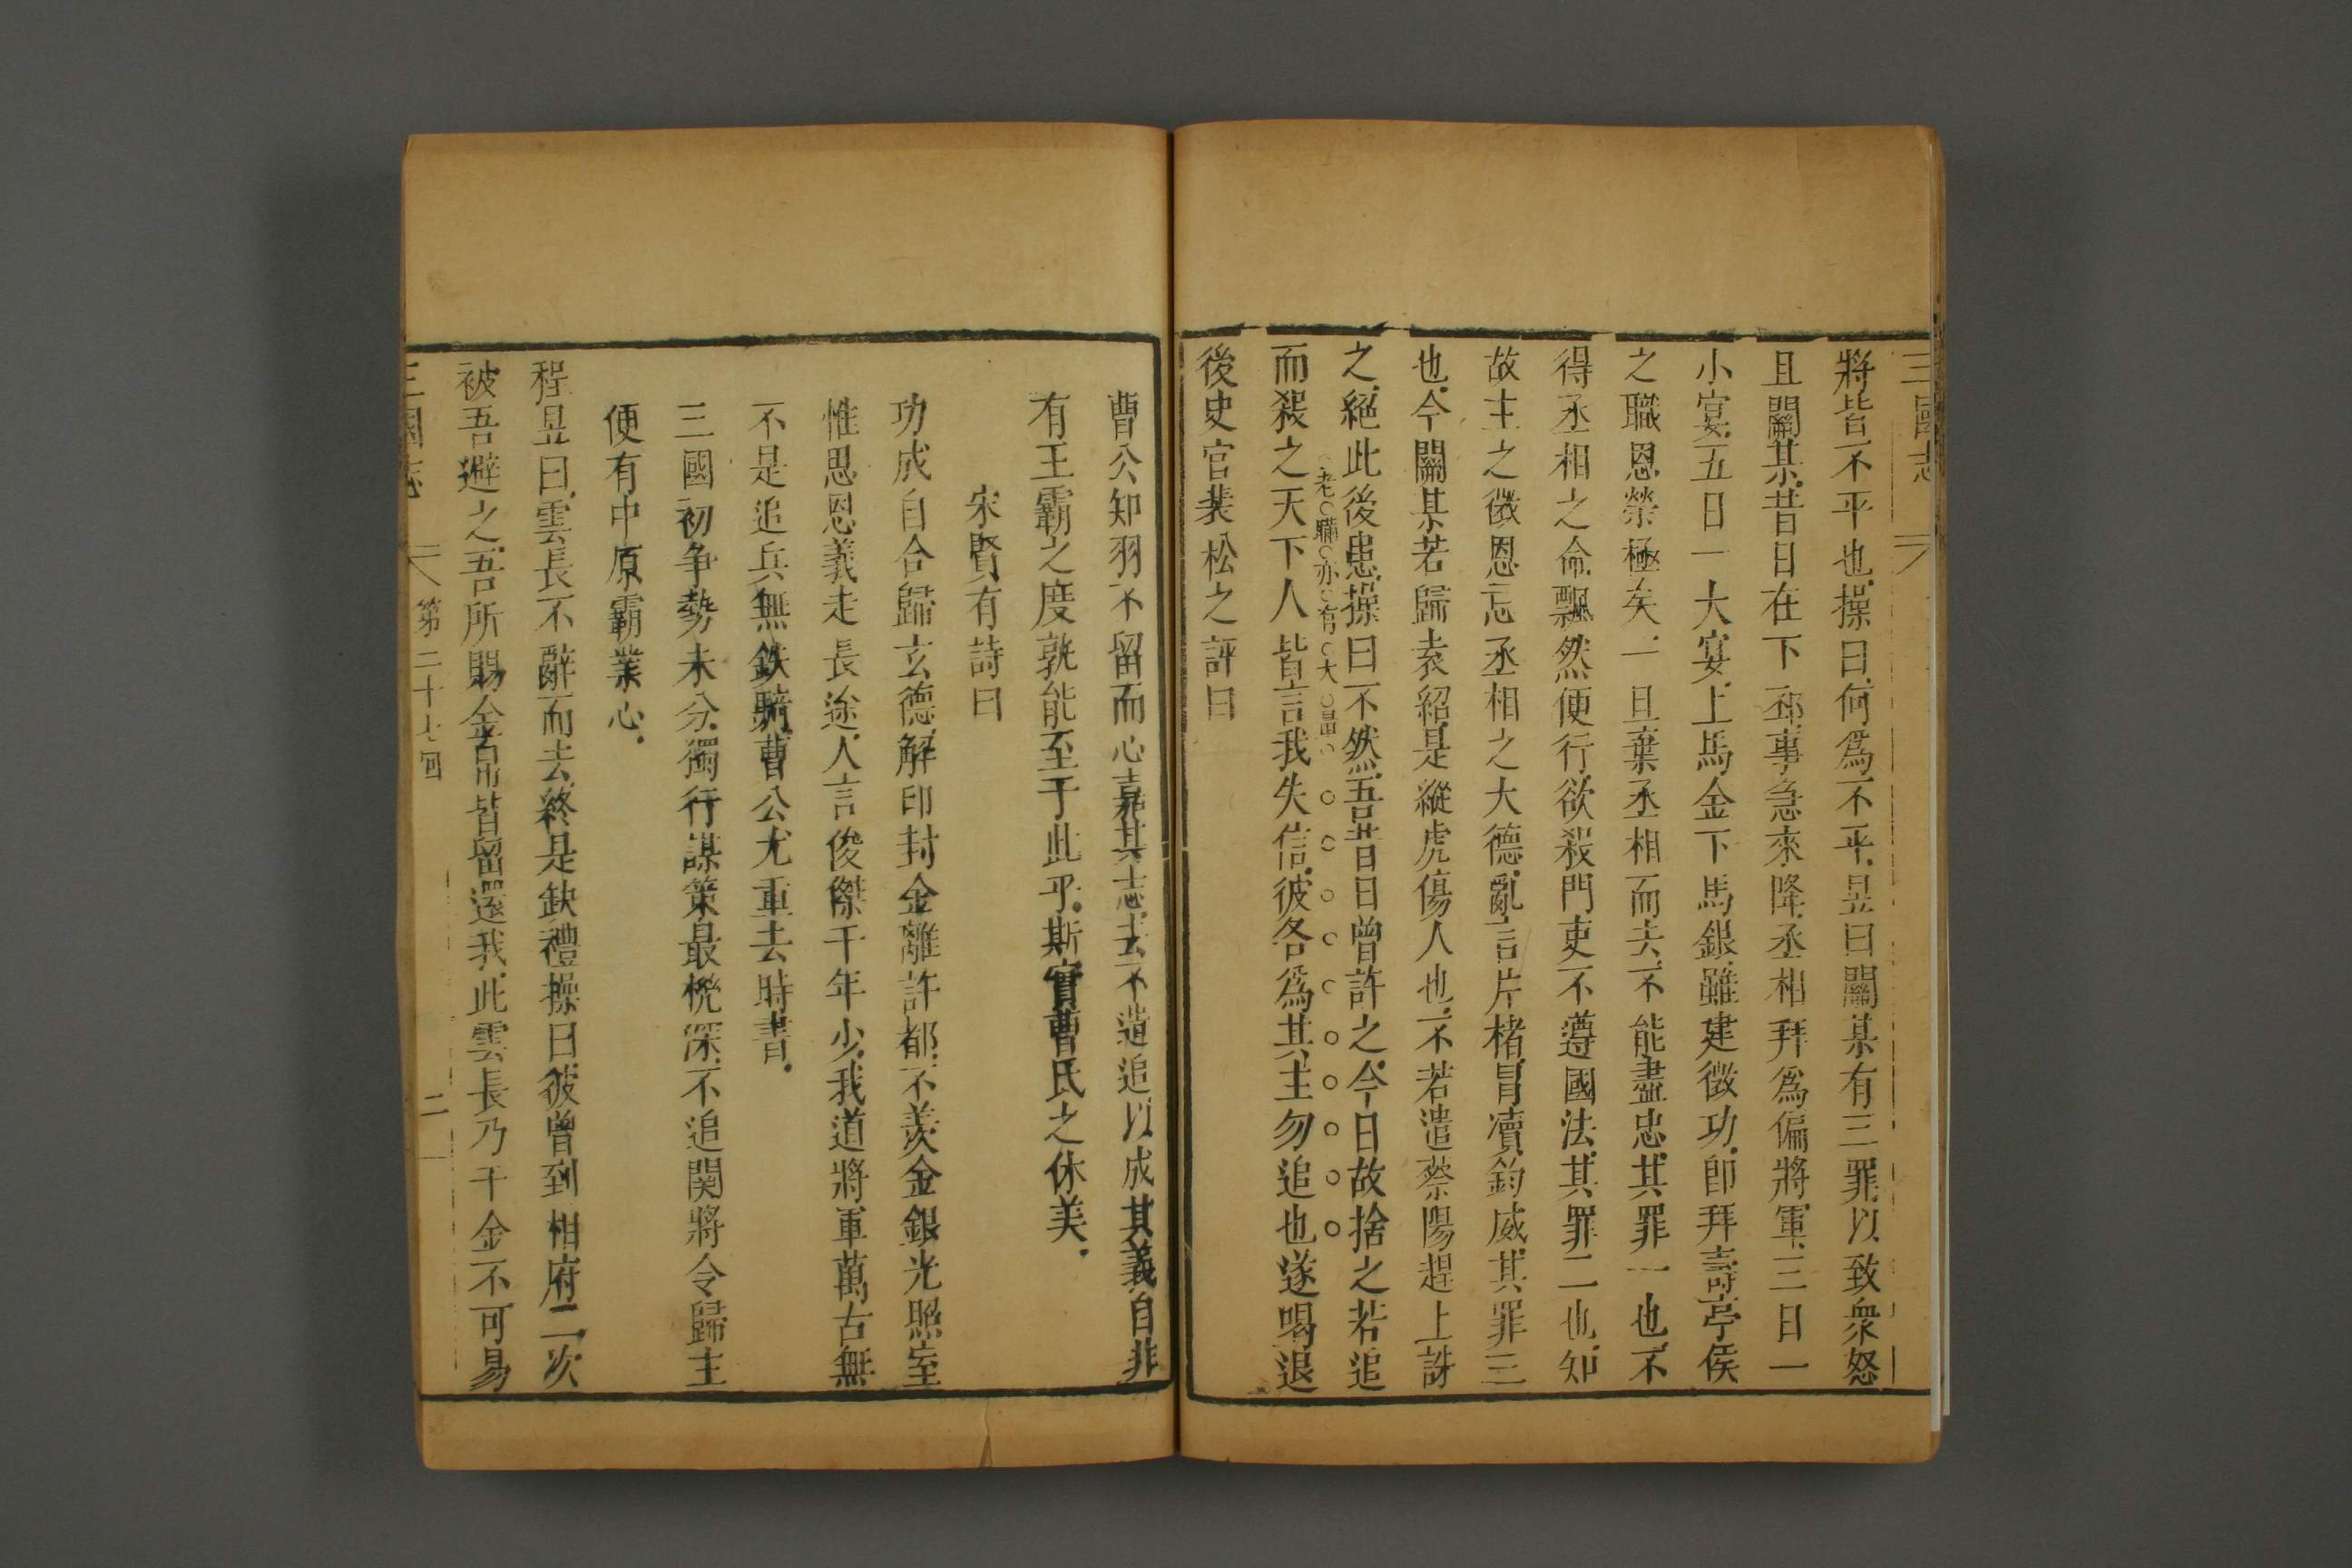 三國志
將皆不平也操曰何爲不平昱曰關某有三罪以致衆怒
且關某昔日在下邳事急來降丞相拜爲偏將軍三日一
小宴五日一大宴上馬金下馬銀雖建微功卽拜壽亭侯
之職恩榮極矣一旦棄丞相而去不能盡忠其罪一也不
得丞相之命飄然便行欲殺門吏不遵國法其罪二也知
故主之微恩忘丞相之大德亂言片楮冒瀆鈞威其罪三
也今關某若歸袁紹是縱虎傷人也不若遣蔡陽趕上誅
之絕此後患操曰不然吾昔日曾許之今日故捨之若追
老瞞亦有大量
而殺之天下人皆言我失信彼各爲其主勿追也遂喝退
後史官裴松之評曰
曹公知羽不留而心嘉其志去不遣追以成其義自非
有王霸之度孰能至于此乎斯實曹氏之休美
宋賢有詩曰
功成自合歸玄德解印封金離許都不羨金銀光照室
惟思恩義走長途人言俊傑千年少我道將軍萬古無
不是追兵無鉄騎曹公尤重去時書
三國初争勢未分獨行謀策最機深不追関將令歸主
便有中原霸業心
程昱曰雲長不辭而去終是缺禮操曰彼曾到相府二次
被吾避之吾所賜金帛皆留還我此雲長乃千金不可易
三國志 第二十七回 二